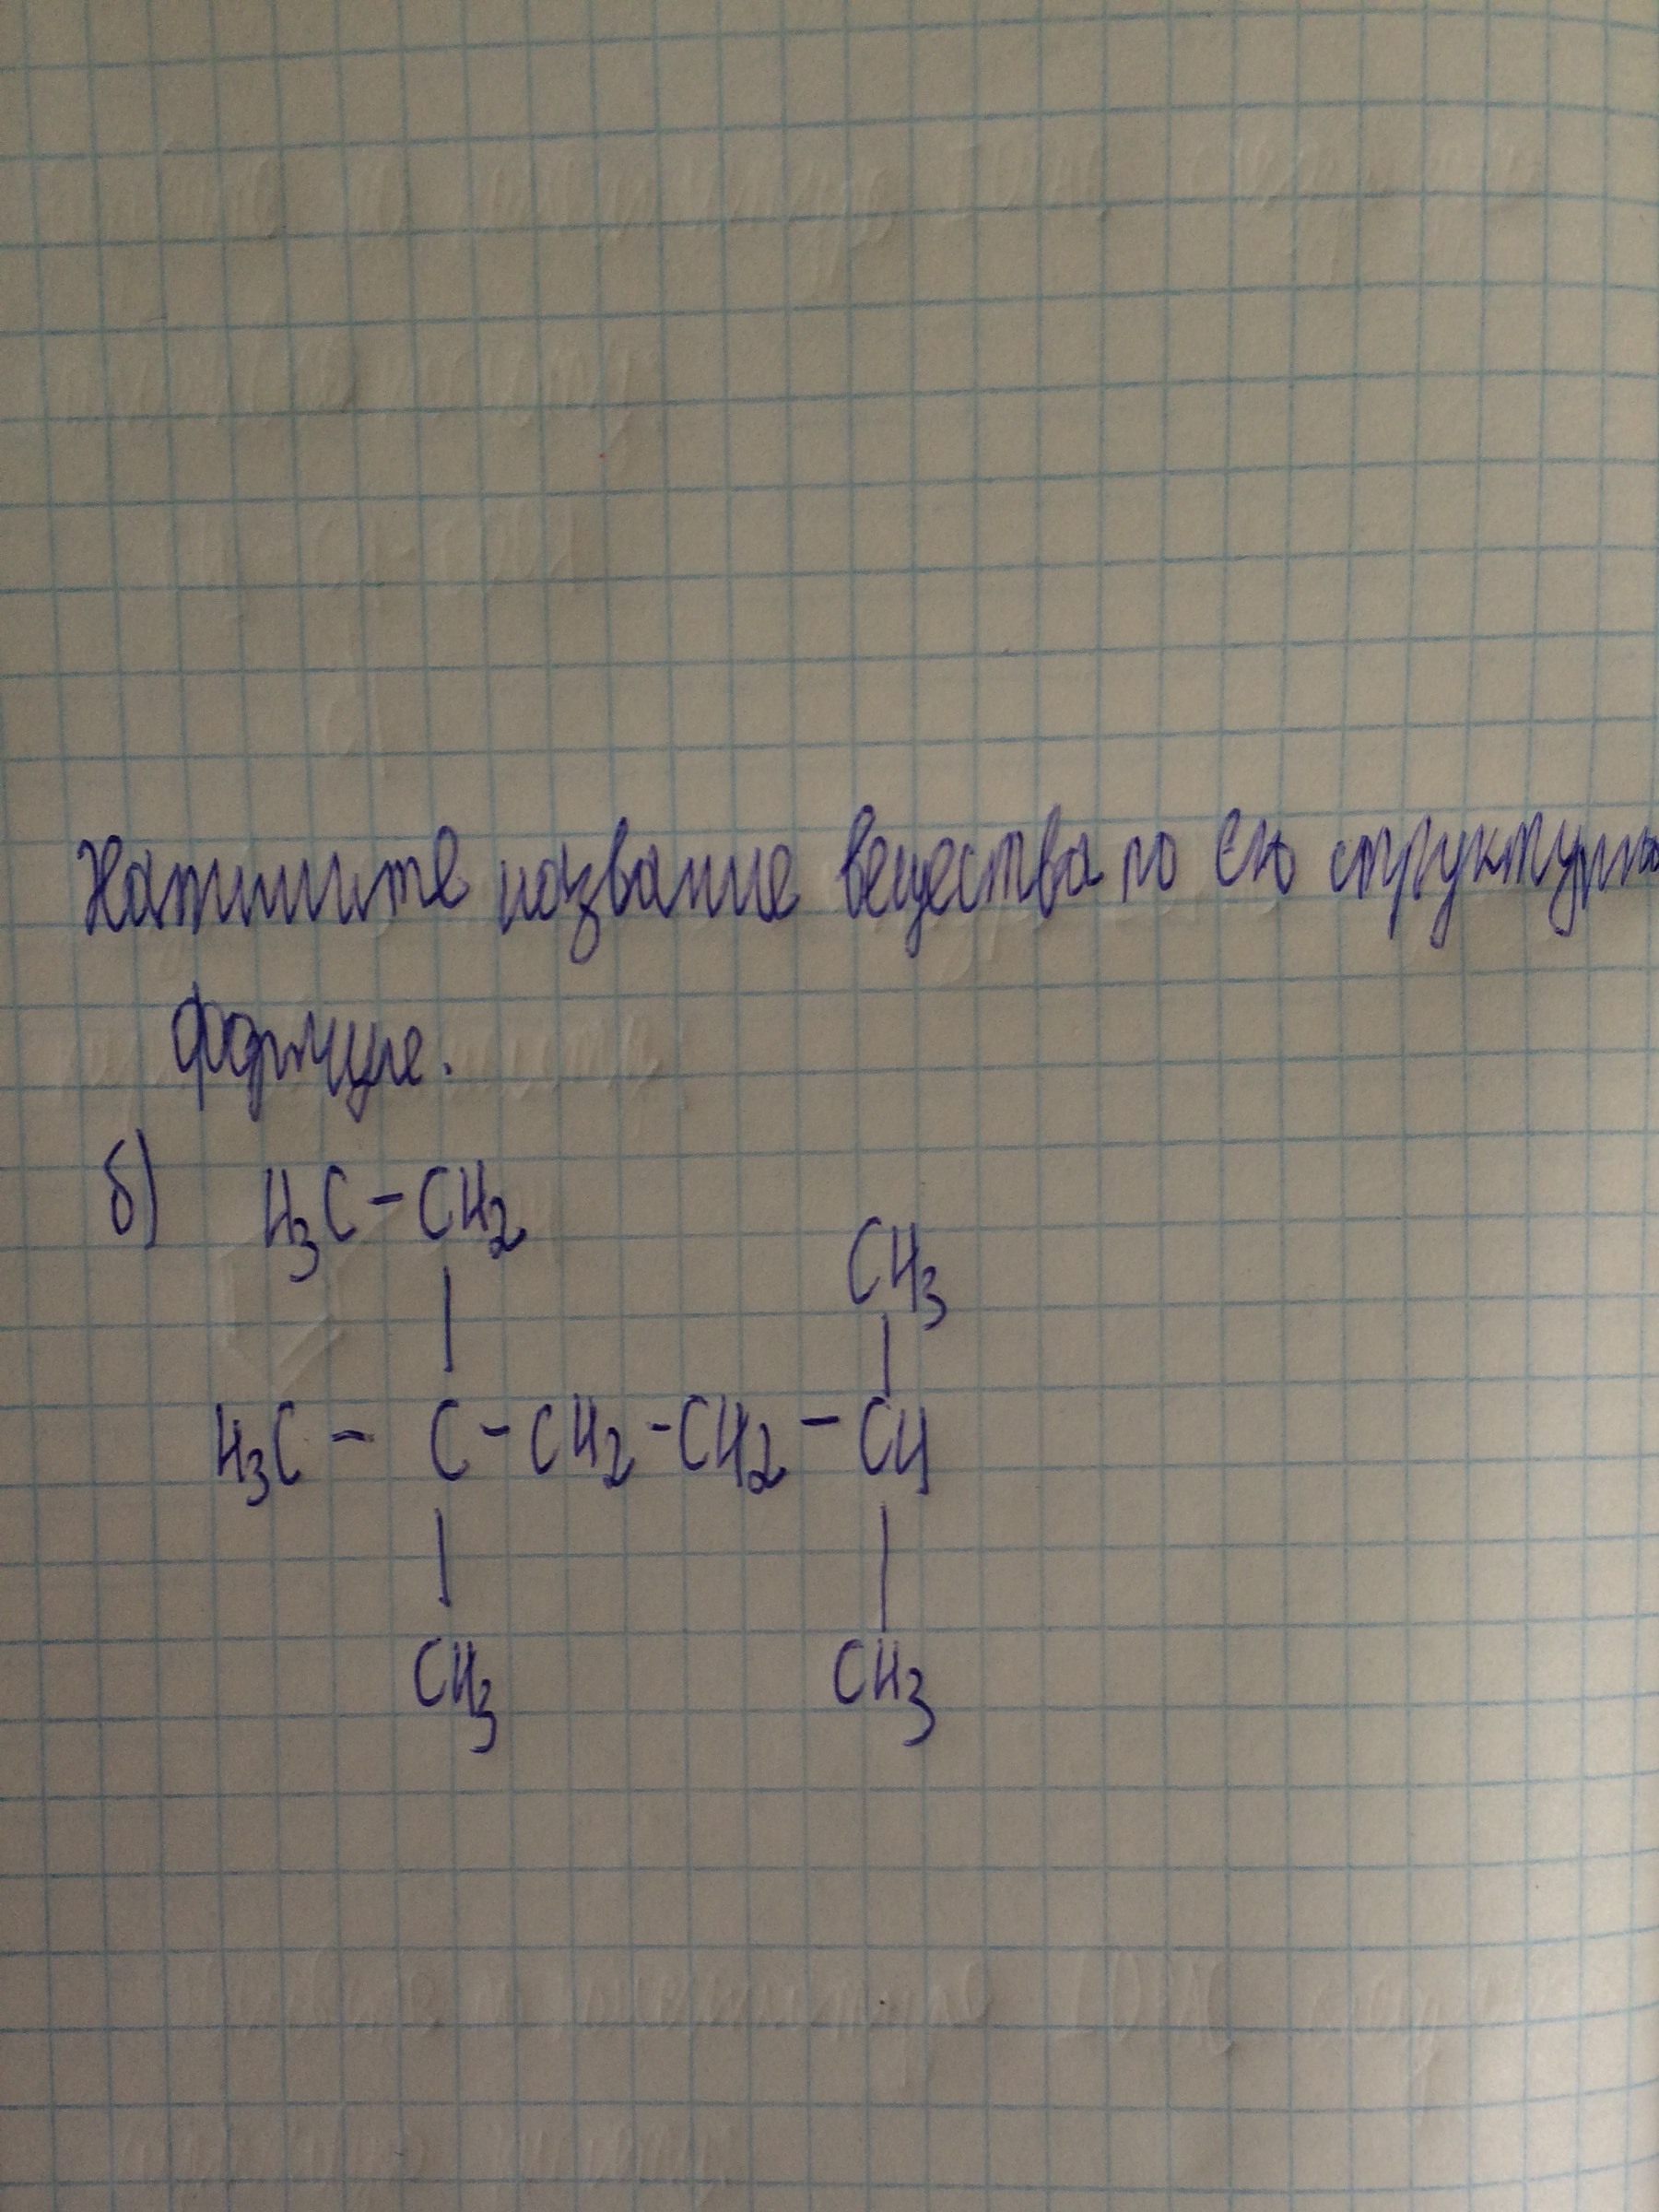 Напишите название вещества по его структурно
формуле.
б) H3C - CH2
CH3
|
|
H3C - C - CH2 - CH2 - CH
|
|
CH3
CH3